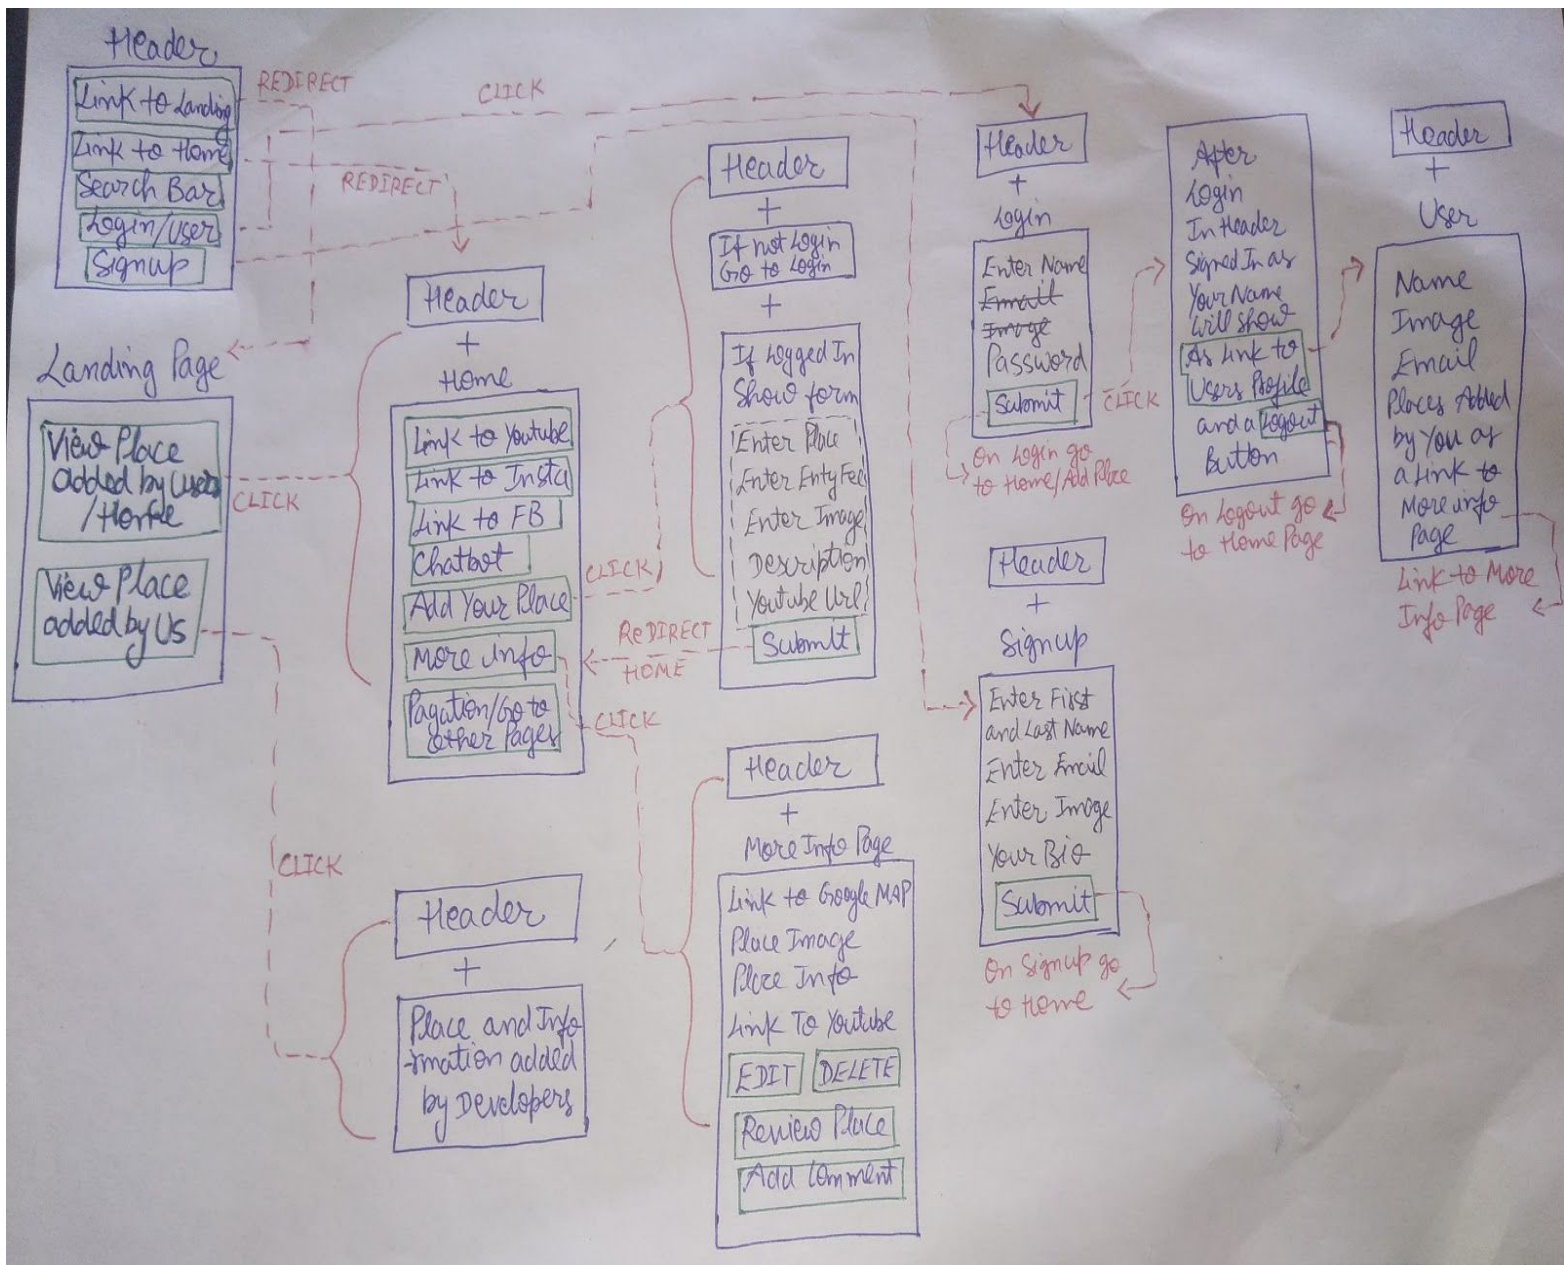 Header
Link to Landing
Link to Home
Search Bar
Login/User
Signup
REDIRECT
REDIRECT
CLICK
Landing Page
View Place
added by Users
/Home
View Place
added by Us
CLICK
CLICK
Header
+
Home
Link to Youtube
Link to Insta
Link to FB
Chatbot
Add Your Place
More info
Pagation/Go to
other Pages
CLICK
ReDIRECT
HOME
CLICK
Header
+
Place and Info
-rmation added
by Developers
Header
+
If not Login
Go to Login
+
If Logged In
Show form
Enter Place
Enter Enty Fee
Enter Image
Description
Youtube Url
Submit
Header
+
More Info Page
Link to Google MAP
Place Image
Place Info
Link To Youtube
EDIT
DELETE
Review Place
Add Comment
Header
+
Login
Enter Name
Email
Image
Password
Submit
CLICK
On Login go
to Home/Add Place
Header
+
Signup
Enter First
and Last Name
Enter Email
Enter Image
Your Bio
Submit
On Signup go
to Home
After
Login
In Header
Signed In as
Your Name
will show
As Link to
Users Profile
and a Logout
Button
On Logout go
to Home Page
Header
+
User
Name
Image
Email
Places Added
by You as
a Link to
More info
Page
Link to More
Info Page